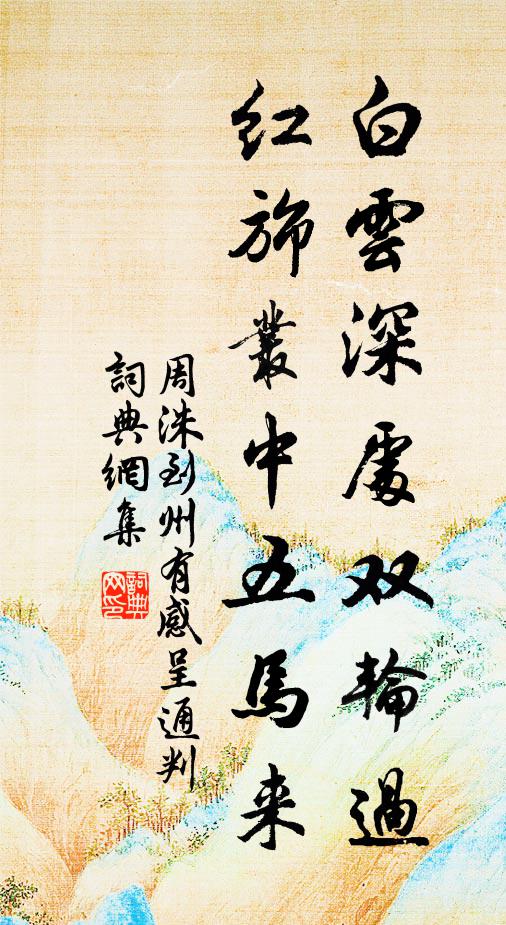 白雲深處双輪過
紅旆叢中五馬来
周洙到州有感呈通判
詞典網集
詞典网印